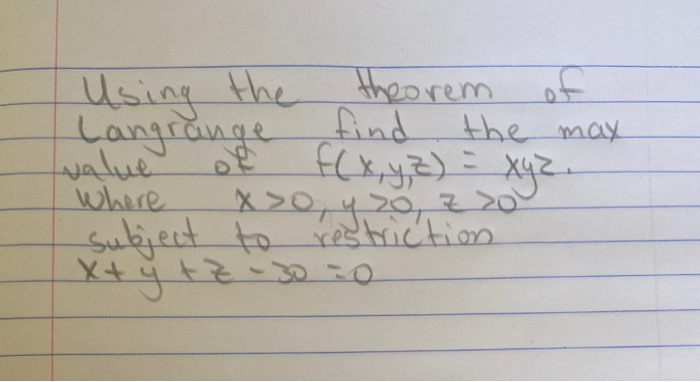 Using the theorem of
Langrange find the max
value of f(x,y,z) = xyz.
Where x>0, y>0, z>0
subject to restriction
x+y+z-30=0